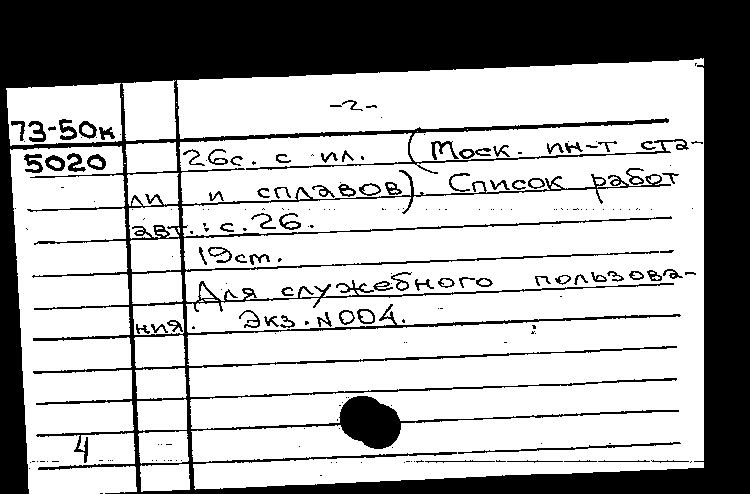 -2-
73-50к
5020
26с. с ил. (Моск. ин-т ста-
ли и сплавов). Список работ
авт.: с.26.
19см.
Для служебного пользова-
ния. Экз.N004.
4